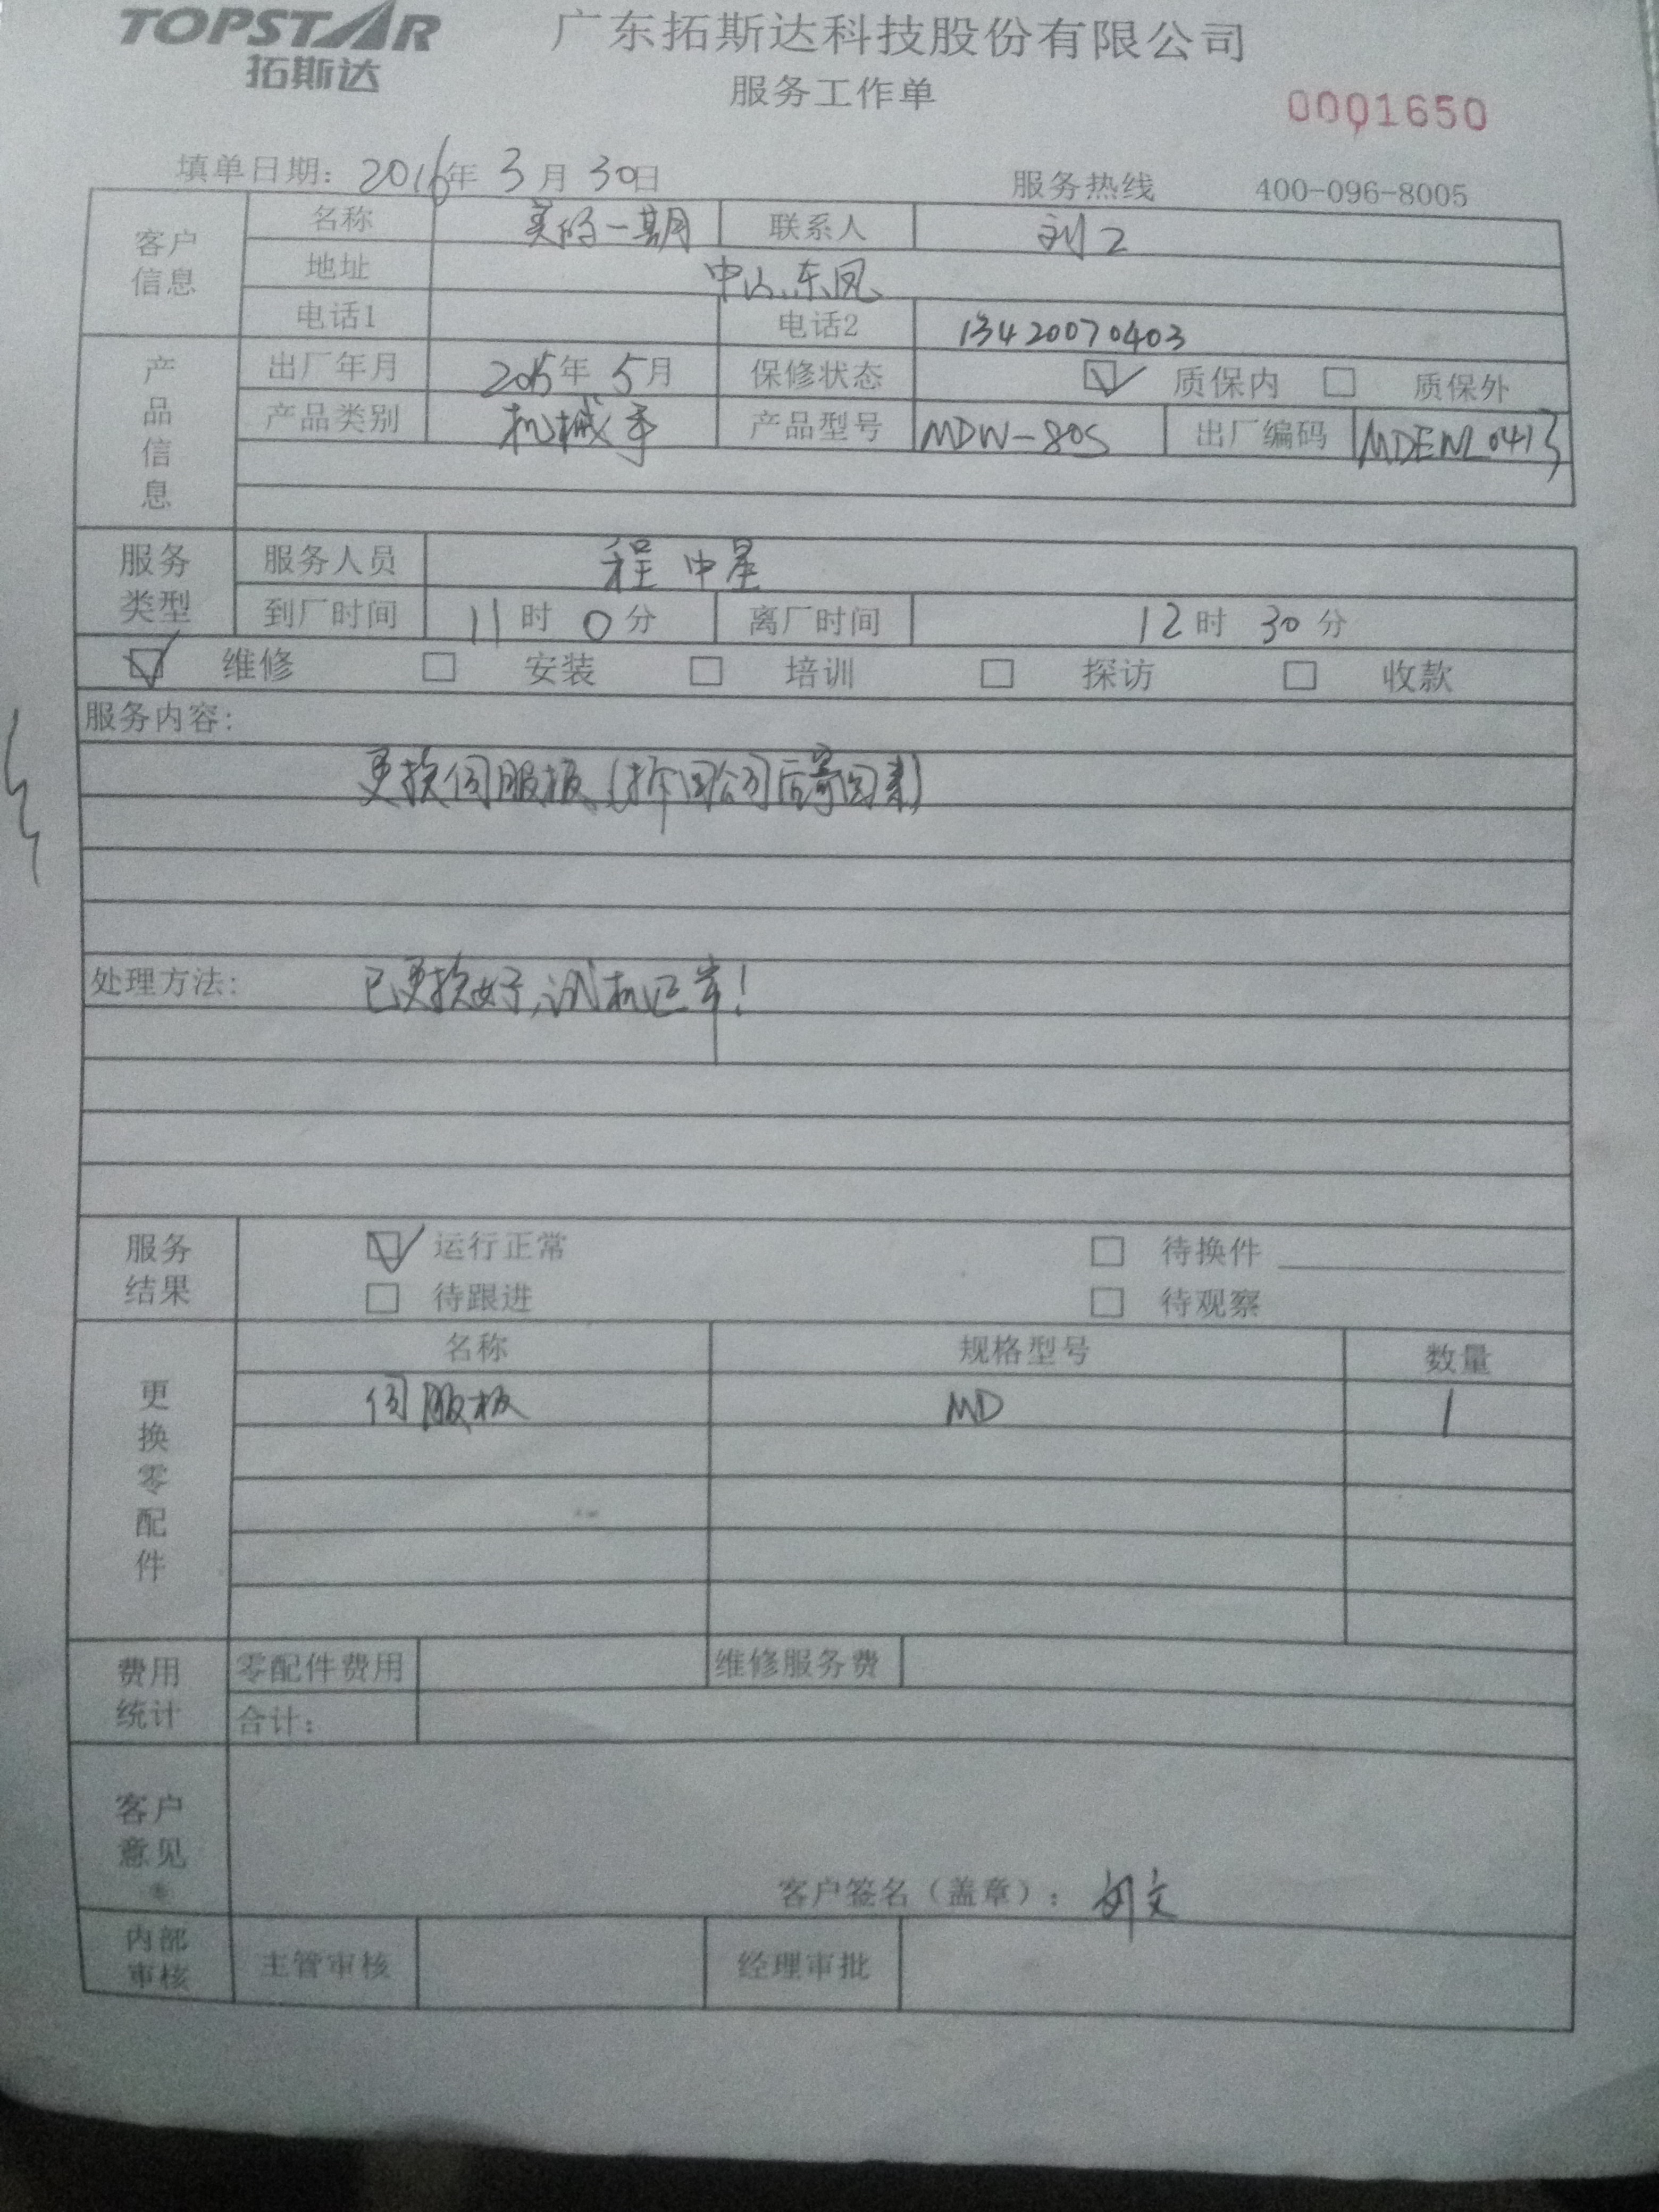 TOPSTAR
拓斯达
广东拓斯达科技股份有限公司
服务工作单
0001650
填单日期: 2016年 3月 30日 服务热线 400-096-8005
客户信息
名称 美的一期 联系人 刘工
地址 中山东凤
电话1 电话2 13420070403
产品信息
出厂年月 2015年 5月 保修状态 质保内 质保外
产品类别 机械手 产品型号 MDW-80S 出厂编码 MDENL0413
服务类型
服务人员 程中星
到厂时间 11时 0分 离厂时间 12时 30分
维修 安装 培训 探访 收款
服务内容:
更换伺服板(拆回公司后寄回来)
处理方法: 已更换好,试机正常!
服务结果
运行正常 待换件
待跟进 待观察
更换零配件
名称 规格型号 数量
伺服板 MD 1
费用统计
零配件费用 维修服务费
合计:
客户意见
客户签名(盖章):
内部审核
主管审核 经理审批